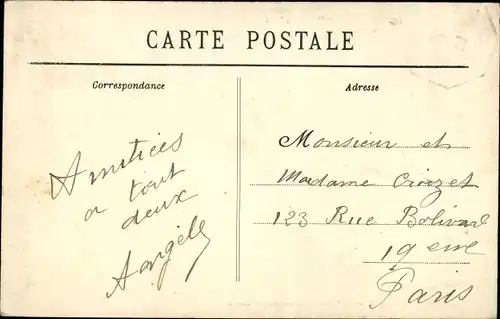 CARTE POSTALE
Correspondance
Adresse
Amitiées
a tout
deux
Angèle
Monsieur et
Madame Crozet
123 Rue Bolivard
19 eme
Paris